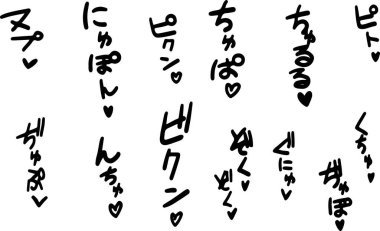 ピト♥
ちゅるる♥
ちゅぽ♡
ピクン♡
にゅぽん♥
ヌプ♥
くちゅ♥
ぎゅぽ♥
ぐにゅ♥
ぞくぞく♥
ビクン♡
んちゅ♡
ぢゅぷ♥